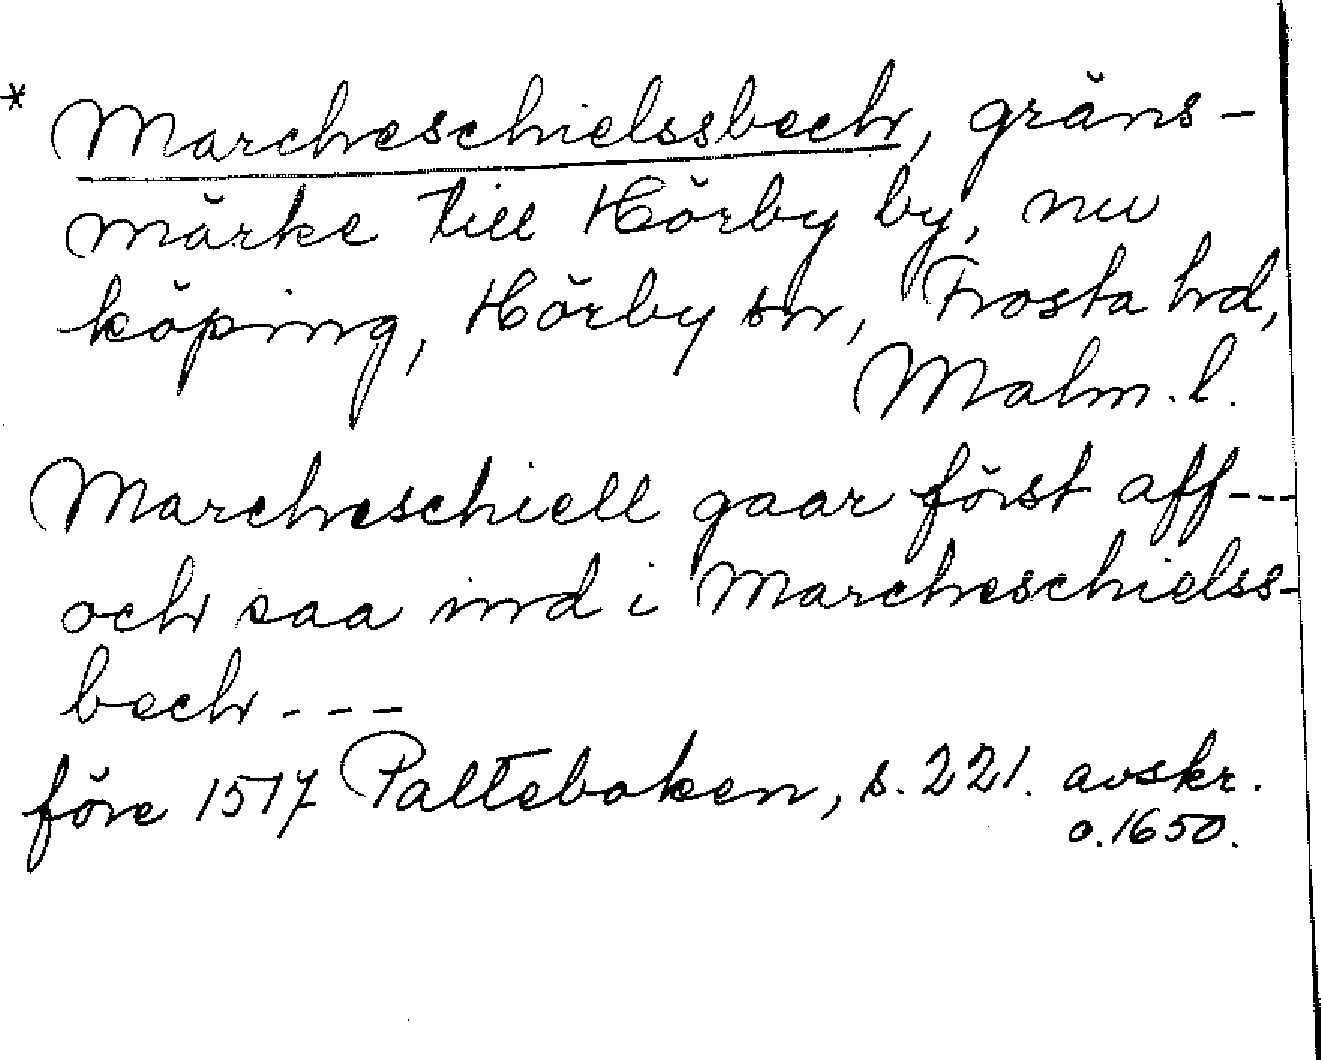 * Marcheschielssbech, gräns-
märke till Hörby by, nu
köping, Hörby sn, Frosta hd,
Malm. l.
Marcheschiell gaar först aff---
och saa ind i Marcheschielss-
bech ---
före 1517 Palteboken, s. 221. avskr.
o. 1650.